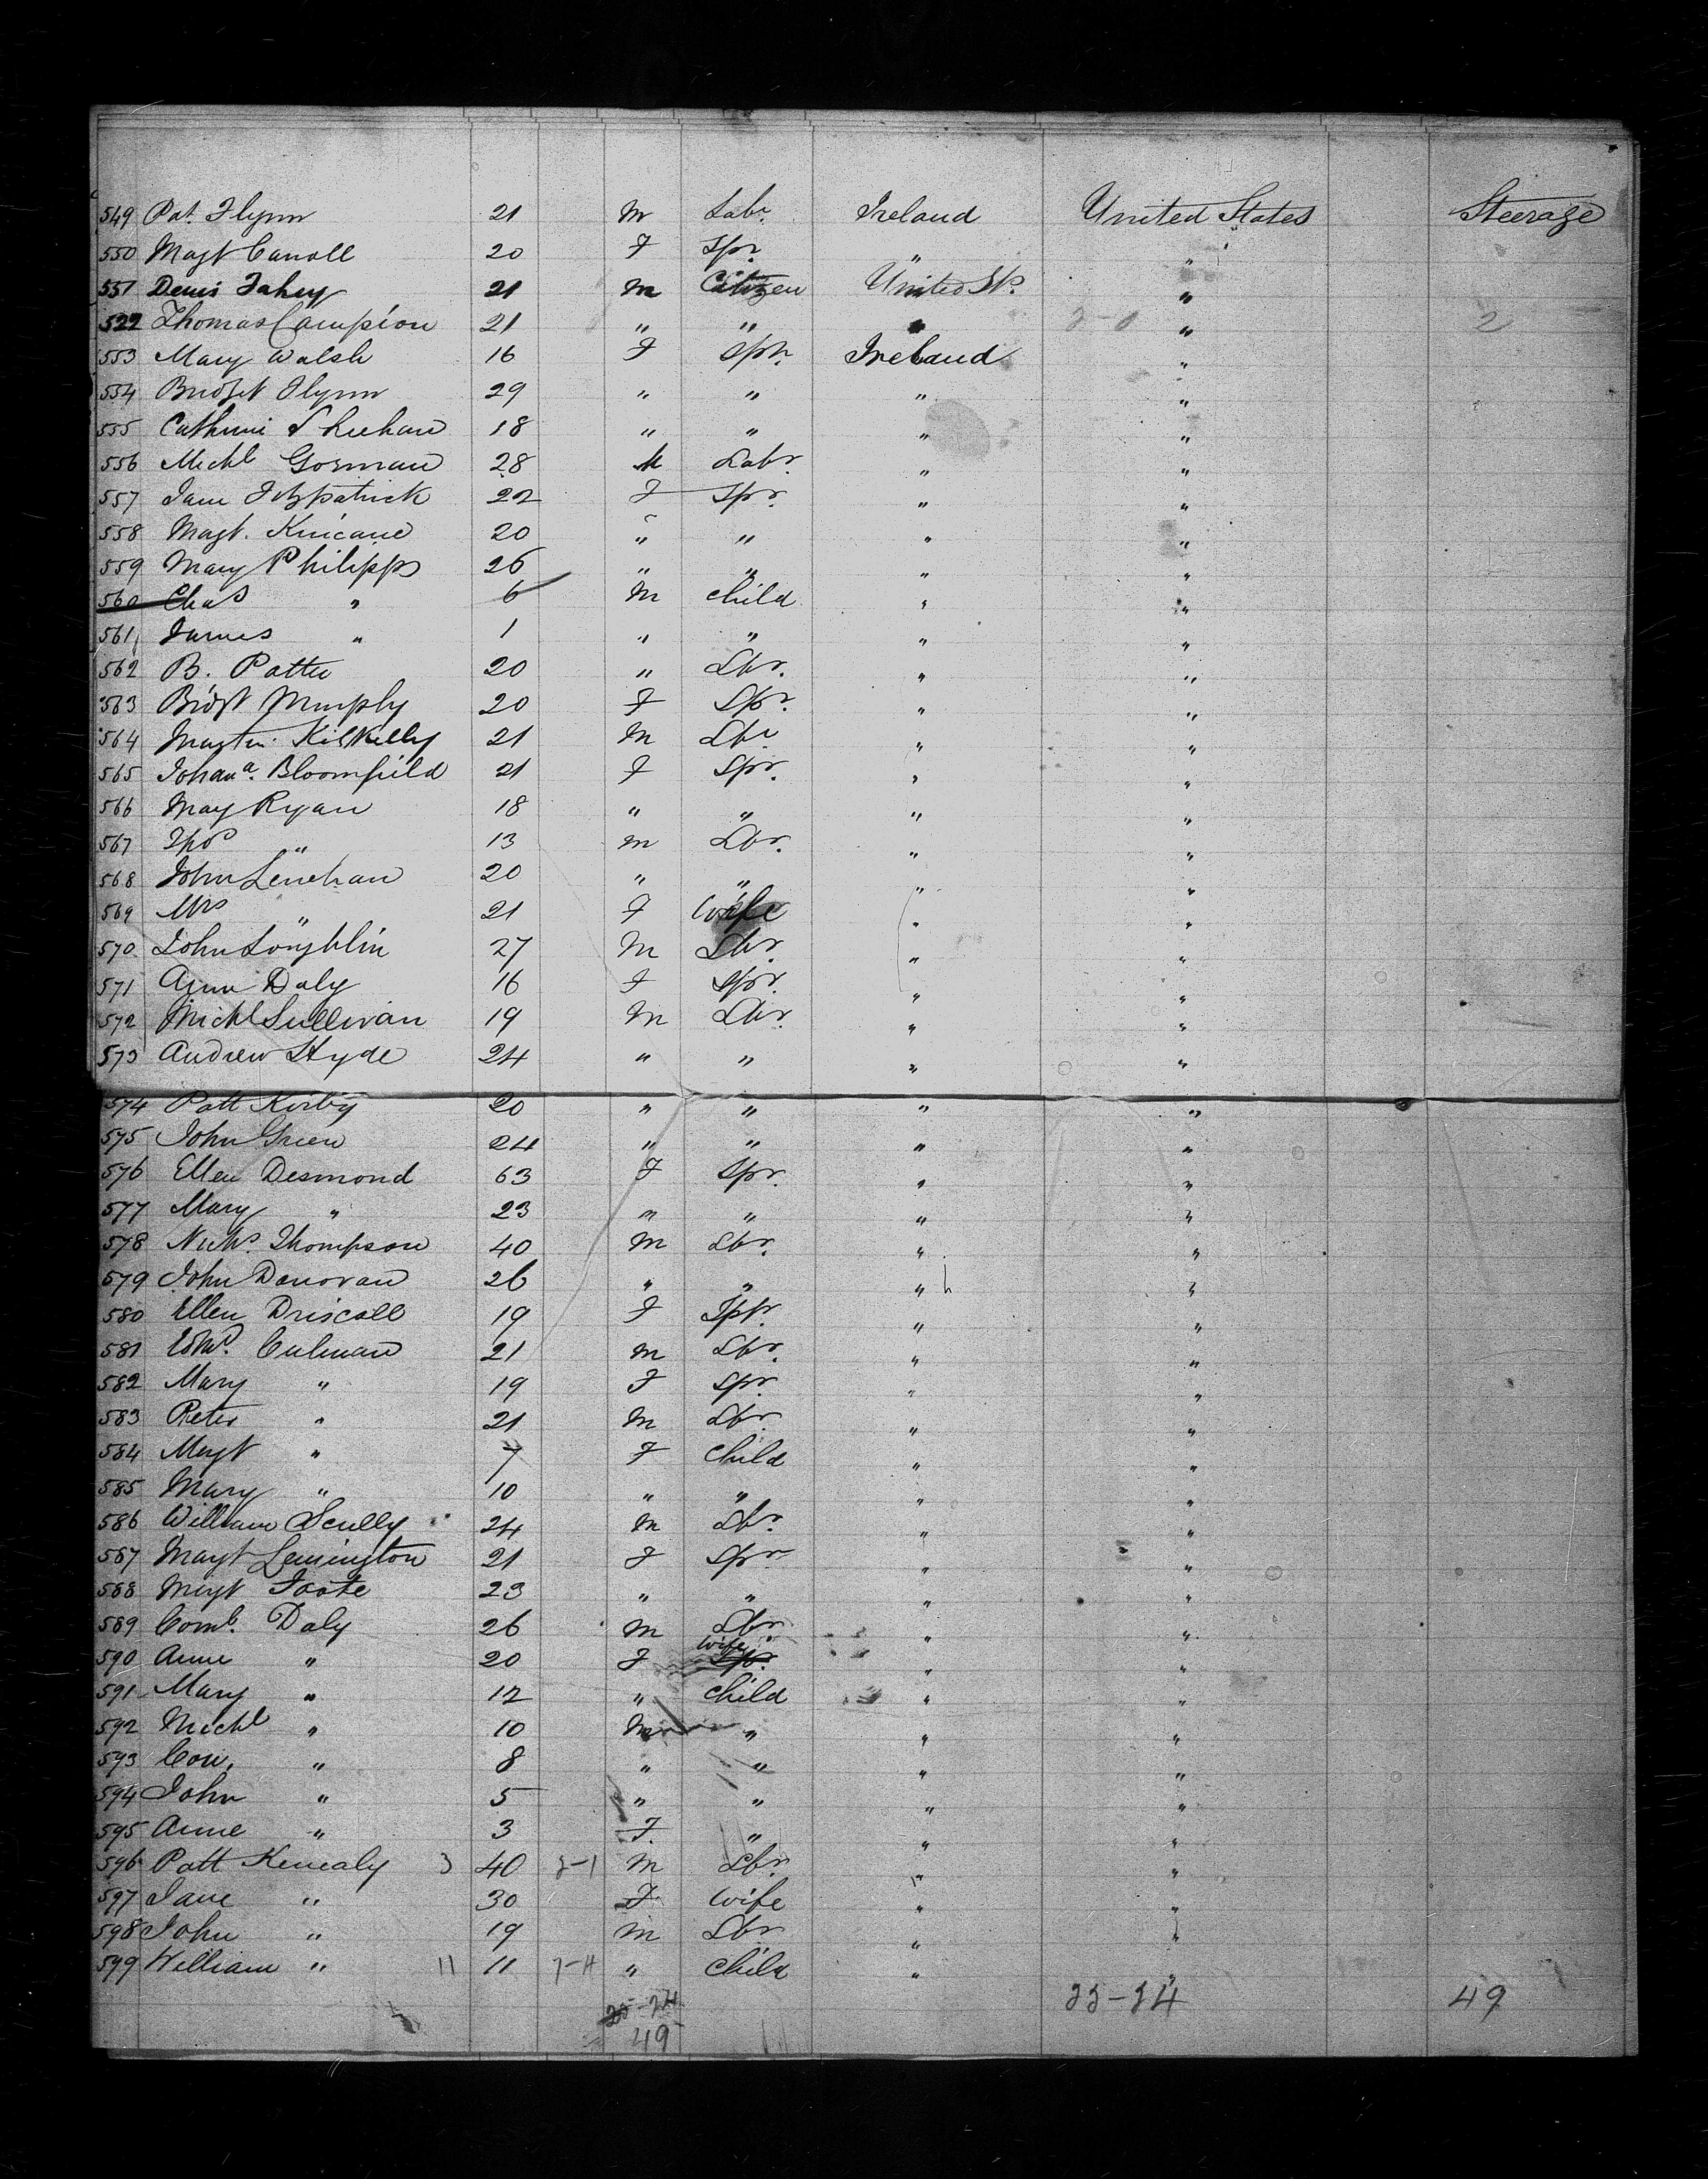 549 Pat. Flynn 21 M Labr. Ireland United States Steerage
550 Magt Carroll 20 F Spr. " "
551 Denis Fahey 21 M Citizen United Sts. "
522 Thomas Campion 21 " " " 2-0 " 2
553 Mary Walsh 16 F Spr. Ireland "
554 Bridget Flynn 29 " " " "
555 Catherine Sheehan 18 " " " "
556 Michl Gorman 28 M Labr. " "
557 Jane Fitzpatrick 22 F Spr. " "
558 Magt. Kincane 20 " " " "
559 Mary Philipps 26 " " " "
560 Chas " 6 M Child " "
561 James " 1 " " " "
562 B. Patter 20 " Lbr. " "
563 Bridgt Murphy 20 F Spr. " "
564 Martin Kilkelly 21 M Lbr " "
565 Johana. Bloomfield 21 F Spr. " "
566 May Ryan 18 " " " "
567 Thos " 13 M Lbr. " "
568 John Lenehan 20 " " " "
569 Mrs " 21 F Wife " "
570 John Loughlin 27 M Lbr. " "
571 Ann Daly 16 F Spr. " "
572 Michl Sullivan 19 M Lbr. " "
573 Andrew Hyde 24 " " " "
574 Patt Kirby 20 " " " "
575 John Green 24 " " " "
576 Ellen Desmond 63 F Spr. " "
577 Mary " 23 " " " "
578 Nichs. Thompson 40 M Lbr. " "
579 John Donovan 26 " " " "
580 Ellen Driscoll 19 F Spr. " "
581 Edwd. Culinan 21 M Lbr. " "
582 Mary " 19 F Spr. " "
583 Peter " 21 M Lbr. " "
584 Magt " 7 F Child " "
585 Mary " 10 " " " "
586 William Scully 24 M Lbr. " "
587 Magt Lemington 21 F Spr " "
588 Magt Foote 23 " " " "
589 Corns. Daly 26 M Lbr. " "
590 Anne " 20 F Wife Spr. " "
591 Mary " 12 " Child " "
592 Michl " 10 M " " "
593 Con. " 8 " " " "
594 John " 5 " " " "
595 Anne " 3 F. " " "
596 Patt Kenealy 3 40 2-1 M Lbr. " "
597 Jane " 30 F Wife " "
598 John " 19 M Lbr " "
599 William " 11 11 7-4 " Child " "
25-24 49
49